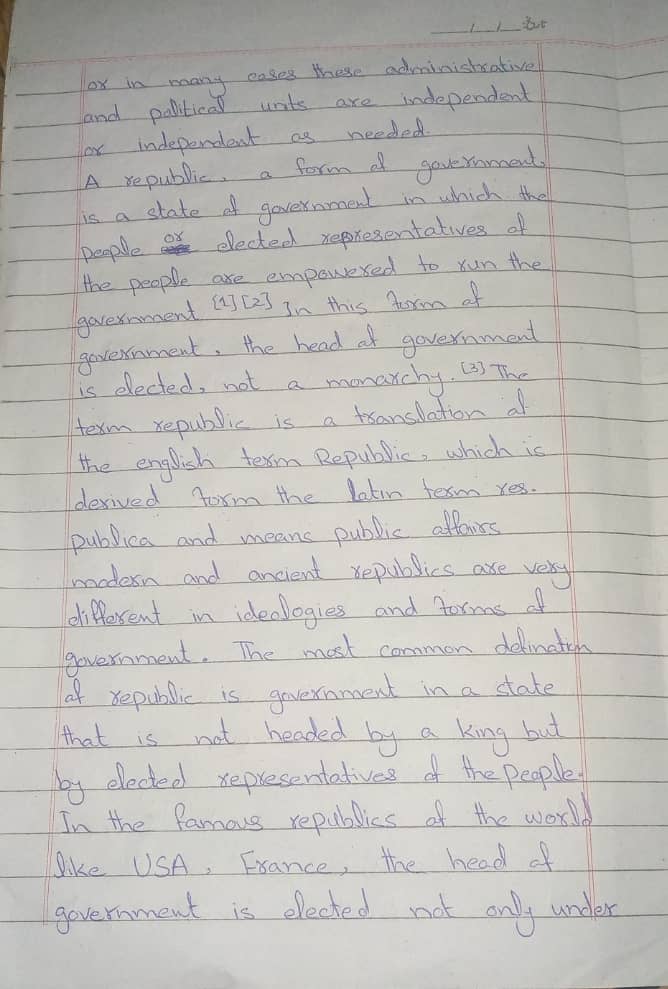 or in many cases these administrative
and political units are independent
or independent as needed.
A republic, a form of government,
is a state of government in which the
people or elected representatives of
the people are empowered to run the
government [1][2] In this form of
government, the head of government
is elected, not a monarchy. [3] The
term republic is a translation of
the english term Republic, which is
derived form the latin term res-
publica and means public affairs
modern and ancient republics are very
different in ideologies and forms of
government. The most common defination
of republic is government in a state
that is not headed by a king but
by elected representatives of the people.
In the famous republics of the world
like USA, France, the head of
government is elected not only under